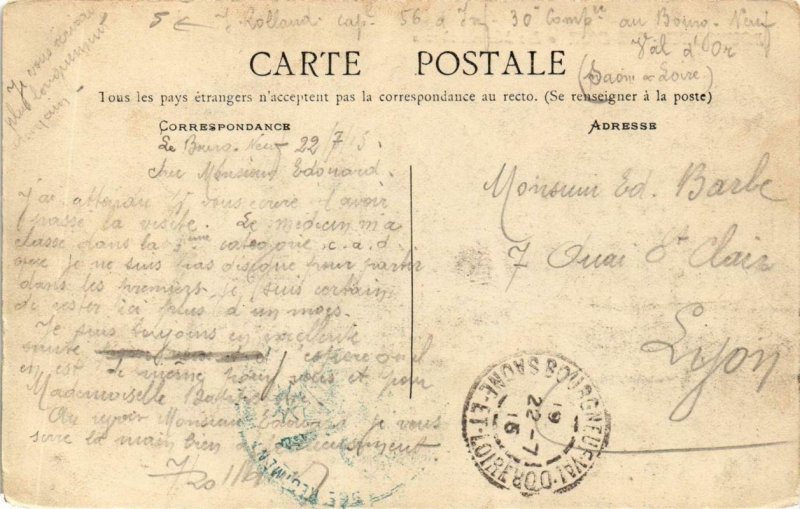 J. Rolland cap. 56e d'Inf 30e Compie au Bourg-Neuf
Val d'Or
(Saône & Loire)
Je vous écrirai
plus longuement
CARTE POSTALE
Tous les pays étrangers n'acceptent pas la correspondance au recto. (Se renseigner à la poste)
CORRESPONDANCE
Le Bourg-Neuf 22/7/15.
Monsieur Edouard.
J'ai attendu vous écrire d'avoir
passé la visite. Le médecin m'a
classé dans la catégorie c.a.d
que je ne suis pas désigné pour partir
dans les premiers. Je suis certain
de rester ici plus d'un mois.
Je suis toujours en excellente
santé j'espère qu'il
en est de même pour vous et pour
Mademoiselle
Au revoir Monsieur Edouard je vous
serre la main bien
ADRESSE
Monsieur Ed. Barbe
7 Quai St Clair
Lyon
BOURGNEUF-VAL-D'OR SAONE-ET-LOIRE
19
22-7
15